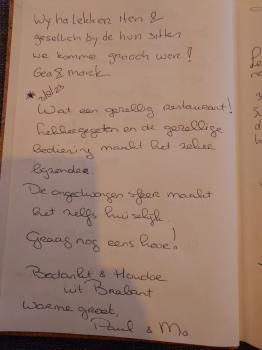 Wy ha lekker iten &
gesellich by de hun sitten
we komme graach wer!
Gea & marck.
Wat een gezellig restaurant!
Lekker gegeten en de gezellige
bediening maakt het zeker
bijzonder.
De ongedwongen sfeer maakt
het zelfs huiselijk.
Graag nog eens hoor!
Bedankt & Houdoe
uit Brabant
Warme groet,
Paul & Mo